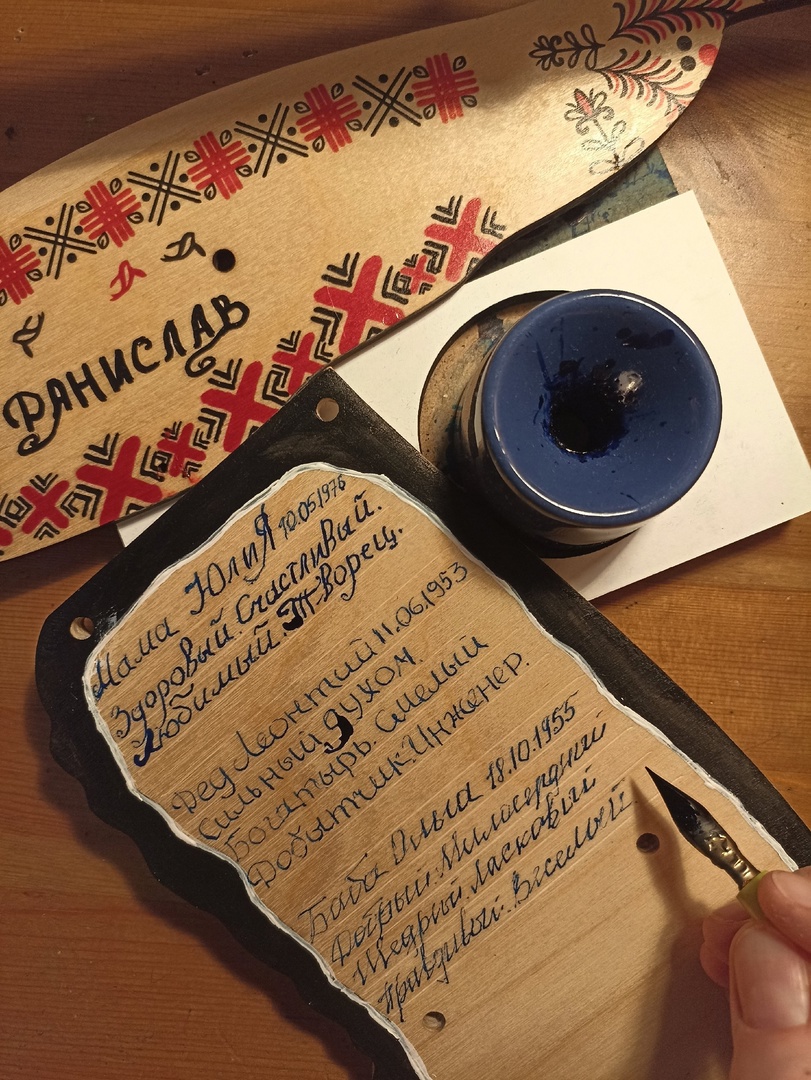 РАНИСЛАВ
Мама ЮлиЯ 10.05.1976
Здоровый. Счастливый.
Любимый. Творец.
Дед Леонтий 11.06.1953
Сильный духом.
Богатырь. Смелый
Добытчик. Инженер.
Баба Ольга 18.10.1955
Добрый. Милосердный
Щедрый. Ласковый
Правдивый. Веселый.